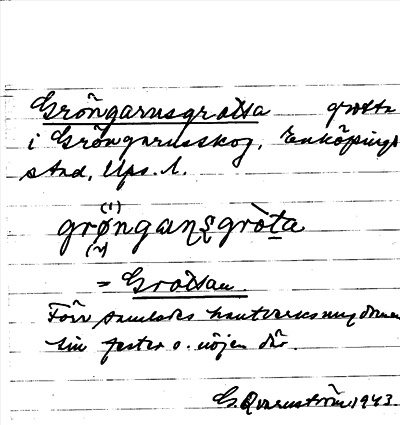 Gröngarnsgrotta grotta
i Gröngarnsskog, Enköpings
stad, Ups. l.
grøngaɳʂgròta
= Grottan.
Förr samlades hantverksungdomen
sin fester o. nöjen där.
G. Qvarnström 1943